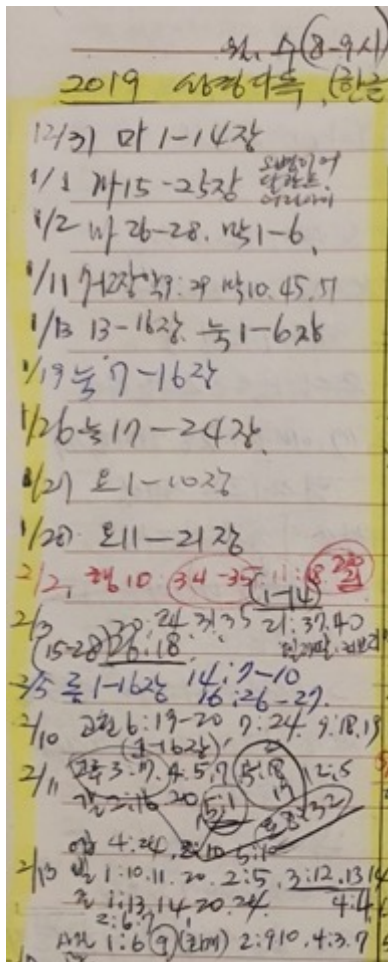 월, 수 (8-9시)
2019 성경다독, (한글
12/31 마 1-14장
1/1 마 15-25장
1/2 마 26-28. 막 1-6,
1/11 7-12장 막9:29 막10.45.51
1/13 13-16장. 눅 1-6장
1/19 눅 7-16장
1/26 눅 17-24장.
1/27 요 1-10장
1/28 요 11-21장
2/2, 행 10 34-35, 11:18
(1-14)
2/3 20:24, 31, 35 21:37,40
(15-28) 26:18
2/5 롬 1-16장 14:7-10
16:26-27.
2/10 고전 6:19-20 7:24. 9:18,19
(1-16장)
2/11 고후 3:17, 4:5,7 5:18 12:5
갈 2:16 20, 5:1
엡 4:24, 5:10
2/13 빌 1:10.11.20. 2:5, 3:12,13,14
골 1:13,14,20,24. 4:4,6
2:6,7
살전 1:6 9 2:9,10, 4:3,7